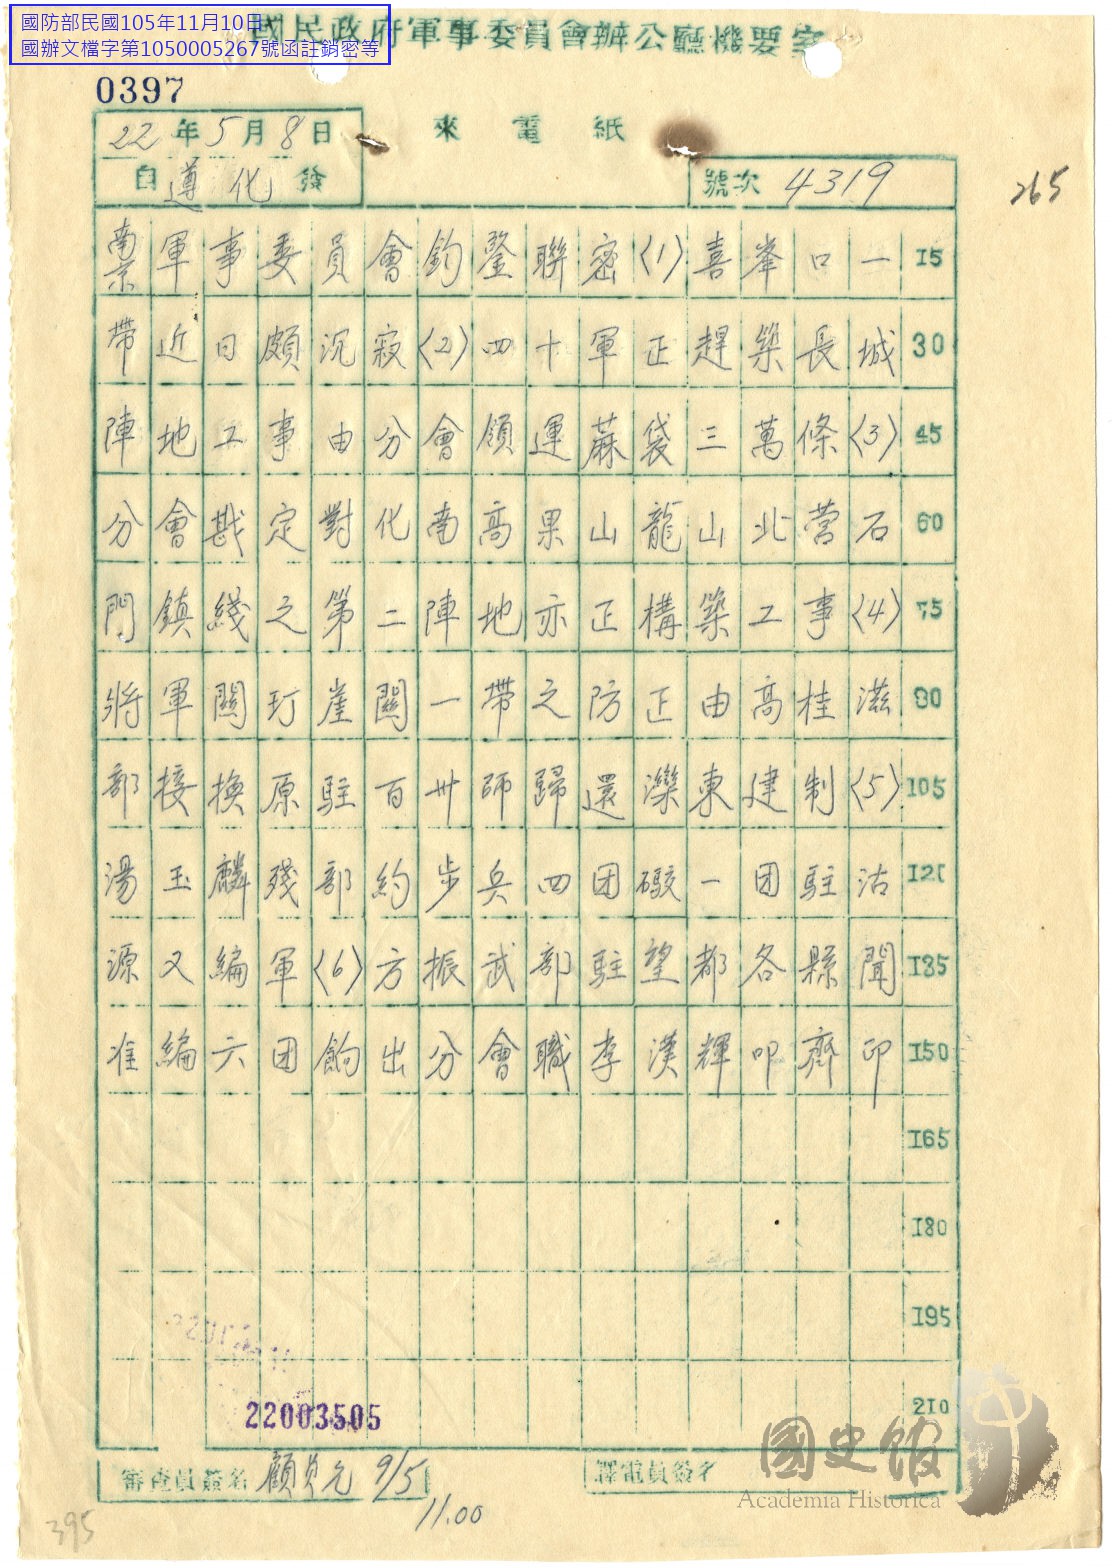 國防部民國105年11月10日
國辦文檔字第1050005267號函註銷密等
國民政府軍事委員會辦公廳機要室
0397
22年5月8日
來電紙
自遵化發
號次 4319
265
南京軍事委員會鈞鑒聯密〈1〉喜峯口一 15
帶近日頗沉寂〈2〉四十軍正趕築長城 30
陣地工事由分會領運蔴袋三萬條〈3〉 45
分會戡定對化南高果山龍山北营石 60
門鎮綫之第二陣地亦正構築工事〈4〉 75
將軍関玎崖関一帶之防正由高桂滋 90
部接換原駐百卅師歸還灤東建制〈5〉 105
湯玉麟殘部約步兵四团礮一团駐沽 120
源又編軍〈6〉方振武部駐望都各縣聞 135
准編六团餉出分會職李漢輝叩齊印 150
165
180
195
210
22003505
審查員簽名 9/5
11.00
譯電員簽名
國史館
Academia Historica
395